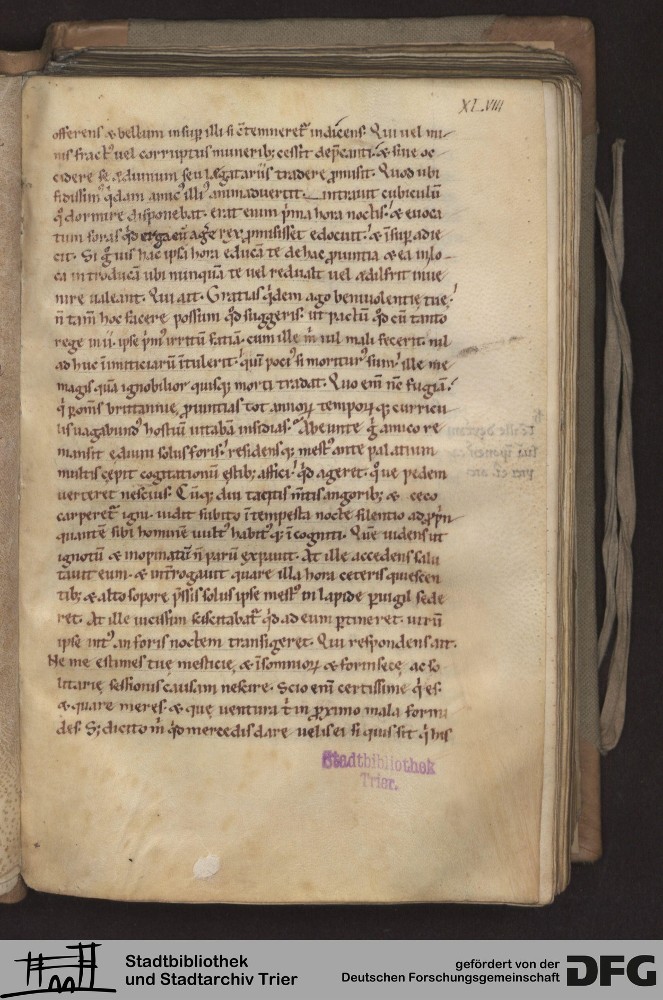 XLVIII
offerens & bellum insup illi si ctemneret indicens. Qui uel mi
nis fract' uel corruptus munerib; cessit depcanti. & siue oc
cidere se ædwinum seu legatariis tradere promisit. Quod ubi
fidissim' qdam amic' illi' animaduertit. intrauit cubiculū
q° dormire disponebat. erat enim pma hora noctis. & euoca
tum foras qd erga eū agere rex promisisset edocuit. & insup adie
cit. Si g uis hac ipsa hora educā te de hac puintia & ea in lo
ca introducā ubi nunquā te uel reduald uel ædilfrit inue
nire ualeant. Qui ait. Gratias qdem ago beniuolentie tuę.
n tam hoc facere possum qd suggeris. ut pactū qd cū tanto
rege inii ipse pm' irritū faciā. cum ille m nil mali fecerit. nil
adhuc inimiciarū intulerit. quin poci' si moritur' sum. ille me
magis quā ignobilior quisq; morti tradat. Quo em nc fugiā.
q p oms brittannie puintias tot annorum temporumq; curricu
lis uagabund' hostiū uitabā insidias. Abeunte g amico re
mansit edium solus foris. residensq; mest' ante palatium
multis cepit cogitationū estib; affici. qd ageret. q°ue pedem
uerteret nescius. Cūq; diu tacitis mtis angorib; & ceco
carperet igni. uidit subito intempesta nocte silentio adppin
quantē sibi hominē uult' habit' q; incogniti. Quē uidens ut
ignotū & inopinatū n parū expauit. At ille accedens salu
tauit eum. & introgauit quare illa hora ceteris quiescen
tib; & alto sopore pssis solus ipse mest' in lapide puigil sede
ret. At ille uicissim sciscitabat qd ad eum ptineret. utrū
ipse int' an foris noctem transigeret. Qui respondens ait.
Ne me estimes tue mesticie & insomniorum & forinsecę ac so
litarię sessionis causam nescire. Scio em certissime q es.
& quare meres. & que uentura t in pximo mala formi
des. S; dicito m qd mercedis dare uelis ei si quis sit q his
Stadtbibliothek
Trier.
Stadtbibliothek
und Stadtarchiv Trier
gefördert von der
Deutschen Forschungsgemeinschaft
DFG